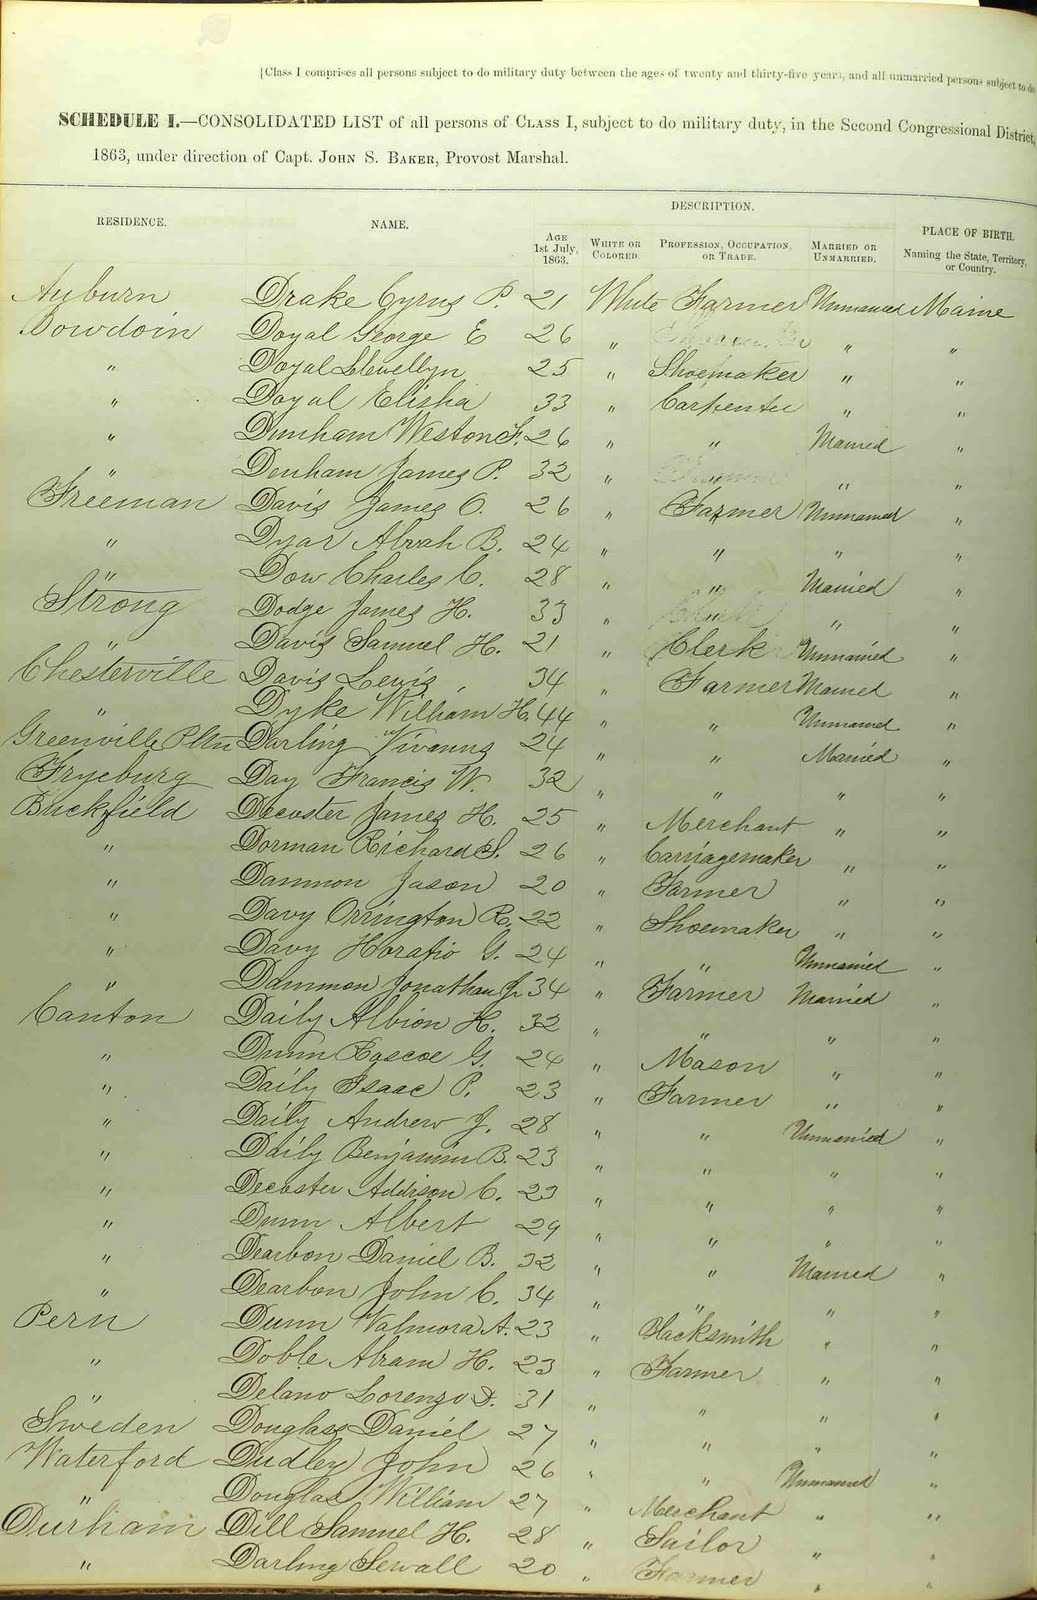 [Class I comprises all persons subject to do military duty between the ages of twenty and thirty-five years, and all unmarried persons subject to do
SCHEDULE I.—CONSOLIDATED LIST of all persons of CLASS I, subject to do military duty, in the Second Congressional District,
1863, under direction of Capt. JOHN S. BAKER, Provost Marshal.
RESIDENCE. NAME. DESCRIPTION. PLACE OF BIRTH.
AGE 1st July, 1863. WHITE OR COLORED. PROFESSION, OCCUPATION, OR TRADE. MARRIED OR UNMARRIED. Naming the State, Territory, or Country.
Auburn Drake Cyrus P. 21 White Farmer Unmarried Maine
Bowdoin Doyal George E 26 " " "
" Doyal Llewellyn 25 " Shoemaker " "
" Doyal Elisha 33 " Carpenter " "
" Dunham Weston F. 26 " " Married "
" Denham James P. 32 " " "
Freeman Davis James O. 26 " Farmer Unmarried "
" Dyar Alvah B. 24 " " " "
" Dow Charles C. 28 " " Married "
Strong Dodge James H. 33 " " "
" Davis Samuel H. 21 " Clerk Unmarried "
Chesterville Davis Lewis 34 " Farmer Married "
" Dyke William H. 44 " " Unmarried "
Greenville Pltn Darling 24 " " Married "
Fryeburg Day Francis W. 32 " " " "
Buckfield Decoster James H. 25 " Merchant " "
" Dorman Richard S. 26 " Carriagemaker " "
" Dammon Jason 20 " Farmer " "
" Davy Orrington R. 22 " Shoemaker " "
" Davy Horatio G. 24 " " Unmarried "
" Dammon Jonathan Jr 34 " Farmer Married "
Canton Daily Albion H. 32 " " " "
" Dunn Roscoe G. 24 " Mason " "
" Daily Isaac P. 23 " Farmer " "
" Daily Andrew J. 28 " " Unmarried "
" Daily Benjamin B. 23 " " " "
" Decoster Addison C. 23 " " " "
" Dunn Albert 29 " " " "
" Dearbon Daniel B. 32 " " Married "
" Dearbon John C. 34 " " " "
Peru Dunn Walmora A. 23 " Blacksmith " "
" Doble Abram H. 23 " Farmer " "
" Delano Lorenzo D. 31 " " " "
Sweden Douglass Daniel 27 " " " "
Waterford Dudley John 26 " " Unmarried "
" Douglas William 27 " Merchant " "
Durham Dill Samuel H. 28 " Sailor " "
" Darling Sewall 20 " Farmer " "